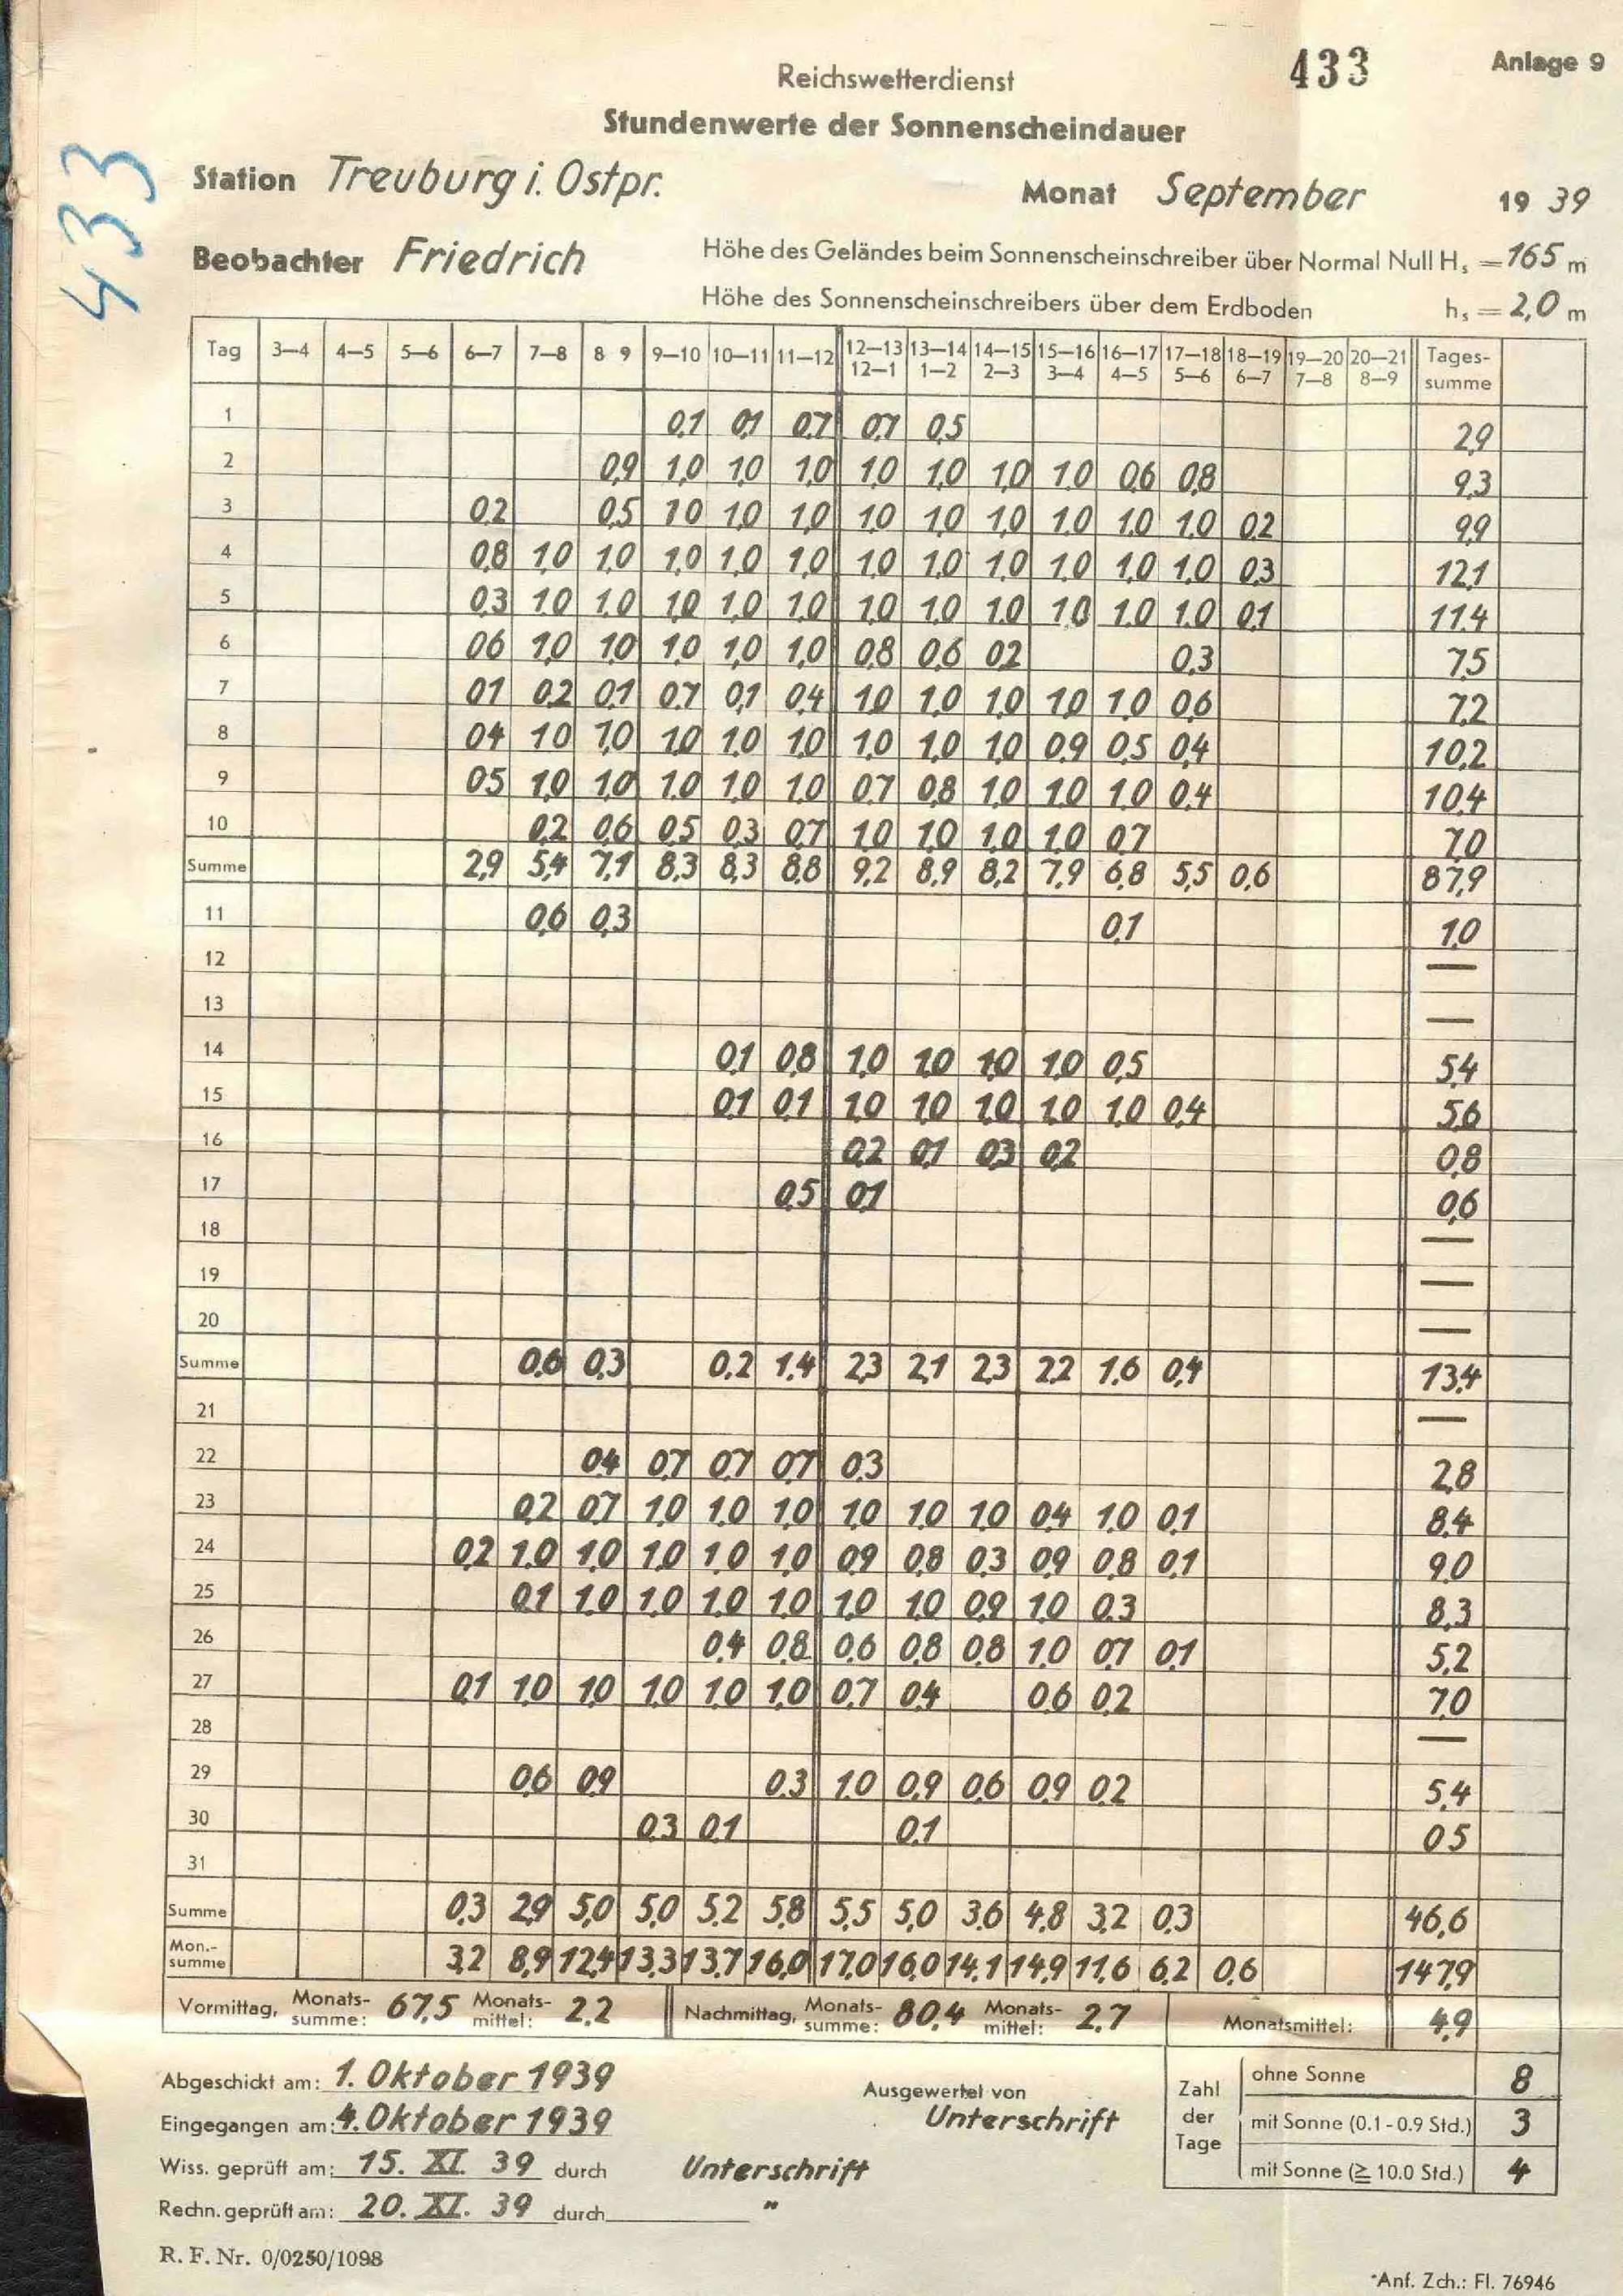 433
Anlage 9
Reichswetterdienst
Stundenwerte der Sonnenscheindauer
433
Station Treuburg i. Ostpr. Monat September 19 39
Beobachter Friedrich Höhe des Geländes beim Sonnenscheinschreiber über Normal Null Hs = 165 m
Höhe des Sonnenscheinschreibers über dem Erdboden hs = 2,0 m
Tag 3—4 4—5 5—6 6—7 7—8 8 9 9—10 10—11 11—12 12—13 13—14 14—15 15—16 16—17 17—18 18—19 19—20 20—21 Tages-
12—1 1—2 2—3 3—4 4—5 5—6 6—7 7—8 8—9 summe
1 0,1 0,1 0,7 0,7 0,5 2,9
2 0,9 1,0 1,0 1,0 1,0 1,0 1,0 1,0 0,6 0,8 9,3
3 0,2 0,5 1,0 1,0 1,0 1,0 1,0 1,0 1,0 1,0 1,0 0,2 9,9
4 0,8 1,0 1,0 1,0 1,0 1,0 1,0 1,0 1,0 1,0 1,0 1,0 0,3 12,1
5 0,3 1,0 1,0 1,0 1,0 1,0 1,0 1,0 1,0 1,0 1,0 1,0 0,1 11,4
6 0,6 1,0 1,0 1,0 1,0 1,0 0,8 0,6 0,2 0,3 7,5
7 0,1 0,2 0,1 0,7 0,1 0,4 1,0 1,0 1,0 1,0 1,0 0,6 7,2
8 0,4 1,0 1,0 1,0 1,0 1,0 1,0 1,0 1,0 0,9 0,5 0,4 10,2
9 0,5 1,0 1,0 1,0 1,0 1,0 0,7 0,8 1,0 1,0 1,0 0,4 10,4
10 0,2 0,6 0,5 0,3 0,7 1,0 1,0 1,0 1,0 0,7 7,0
Summe 2,9 5,4 7,1 8,3 8,3 8,8 9,2 8,9 8,2 7,9 6,8 5,5 0,6 87,9
11 0,6 0,3 0,1 1,0
12 —
13 —
14 0,1 0,8 1,0 1,0 1,0 1,0 0,5 5,4
15 0,1 0,1 1,0 1,0 1,0 1,0 1,0 0,4 5,6
16 0,2 0,1 0,3 0,2 0,8
17 0,5 0,1 0,6
18 —
19 —
20 —
Summe 0,6 0,3 0,2 1,4 2,3 2,1 2,3 2,2 1,6 0,4 13,4
21 —
22 0,4 0,7 0,7 0,7 0,3 2,8
23 0,2 0,7 1,0 1,0 1,0 1,0 1,0 1,0 0,4 1,0 0,1 8,4
24 0,2 1,0 1,0 1,0 1,0 1,0 0,9 0,8 0,3 0,9 0,8 0,1 9,0
25 0,1 1,0 1,0 1,0 1,0 1,0 1,0 0,9 1,0 0,3 8,3
26 0,4 0,8 0,6 0,8 0,8 1,0 0,7 0,1 5,2
27 0,1 1,0 1,0 1,0 1,0 1,0 0,7 0,4 0,6 0,2 7,0
28 —
29 0,6 0,9 0,3 1,0 0,9 0,6 0,9 0,2 5,4
30 0,3 0,1 0,1 0 5
31
Summe 0,3 2,9 5,0 5,0 5,2 5,8 5,5 5,0 3,6 4,8 3,2 0,3 46,6
Mon.-
summe 3,2 8,9 12,4 13,3 13,7 16,0 17,0 16,0 14,1 14,9 11,6 6,2 0,6 147,9
Vormittag, Monats-summe: 67,5 Monats-mittel: 2,2 Nachmittag, Monats-summe: 80,4 Monats-mittel: 2,7 Monatsmittel: 4,9
Abgeschickt am: 1. Oktober 1939
Eingegangen am: 4. Oktober 1939
Wiss. geprüft am: 15. XI. 39 durch Unterschrift
Rechn. geprüft am: 20. XI. 39 durch "
Ausgewertet von
Unterschrift
Zahl der Tage
ohne Sonne 8
mit Sonne (0.1 - 0.9 Std.) 3
mit Sonne (≥ 10.0 Std.) 4
R. F. Nr. 0/0250/1098
Anf. Zch.: Fl. 76946